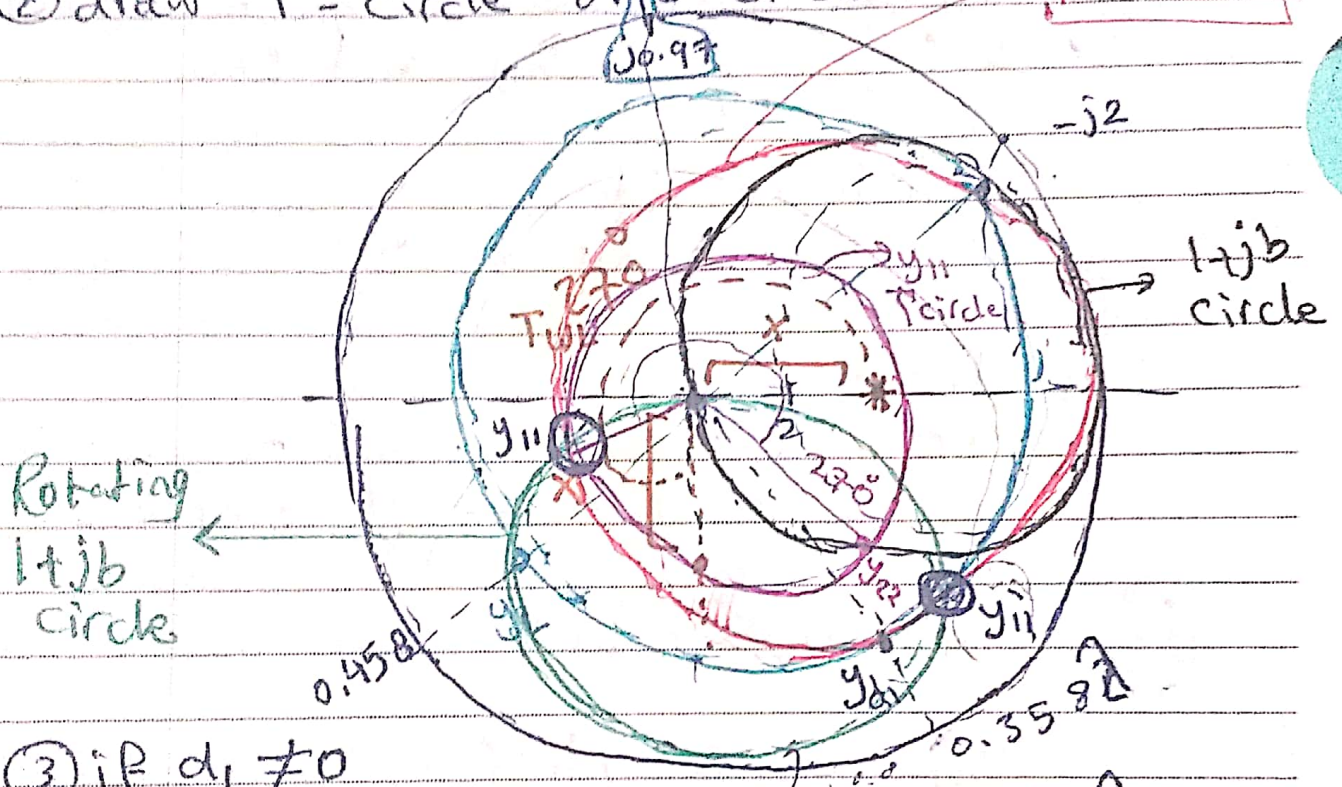 ② draw Γ - circle
j0.97
-j2
1+jb
circle
y11
Γ circle
270
y11
270°
Rotating
1+jb
circle
y22
y11
yL
yd1
0.458
0.358 λ
③ if d1 ≠ 0